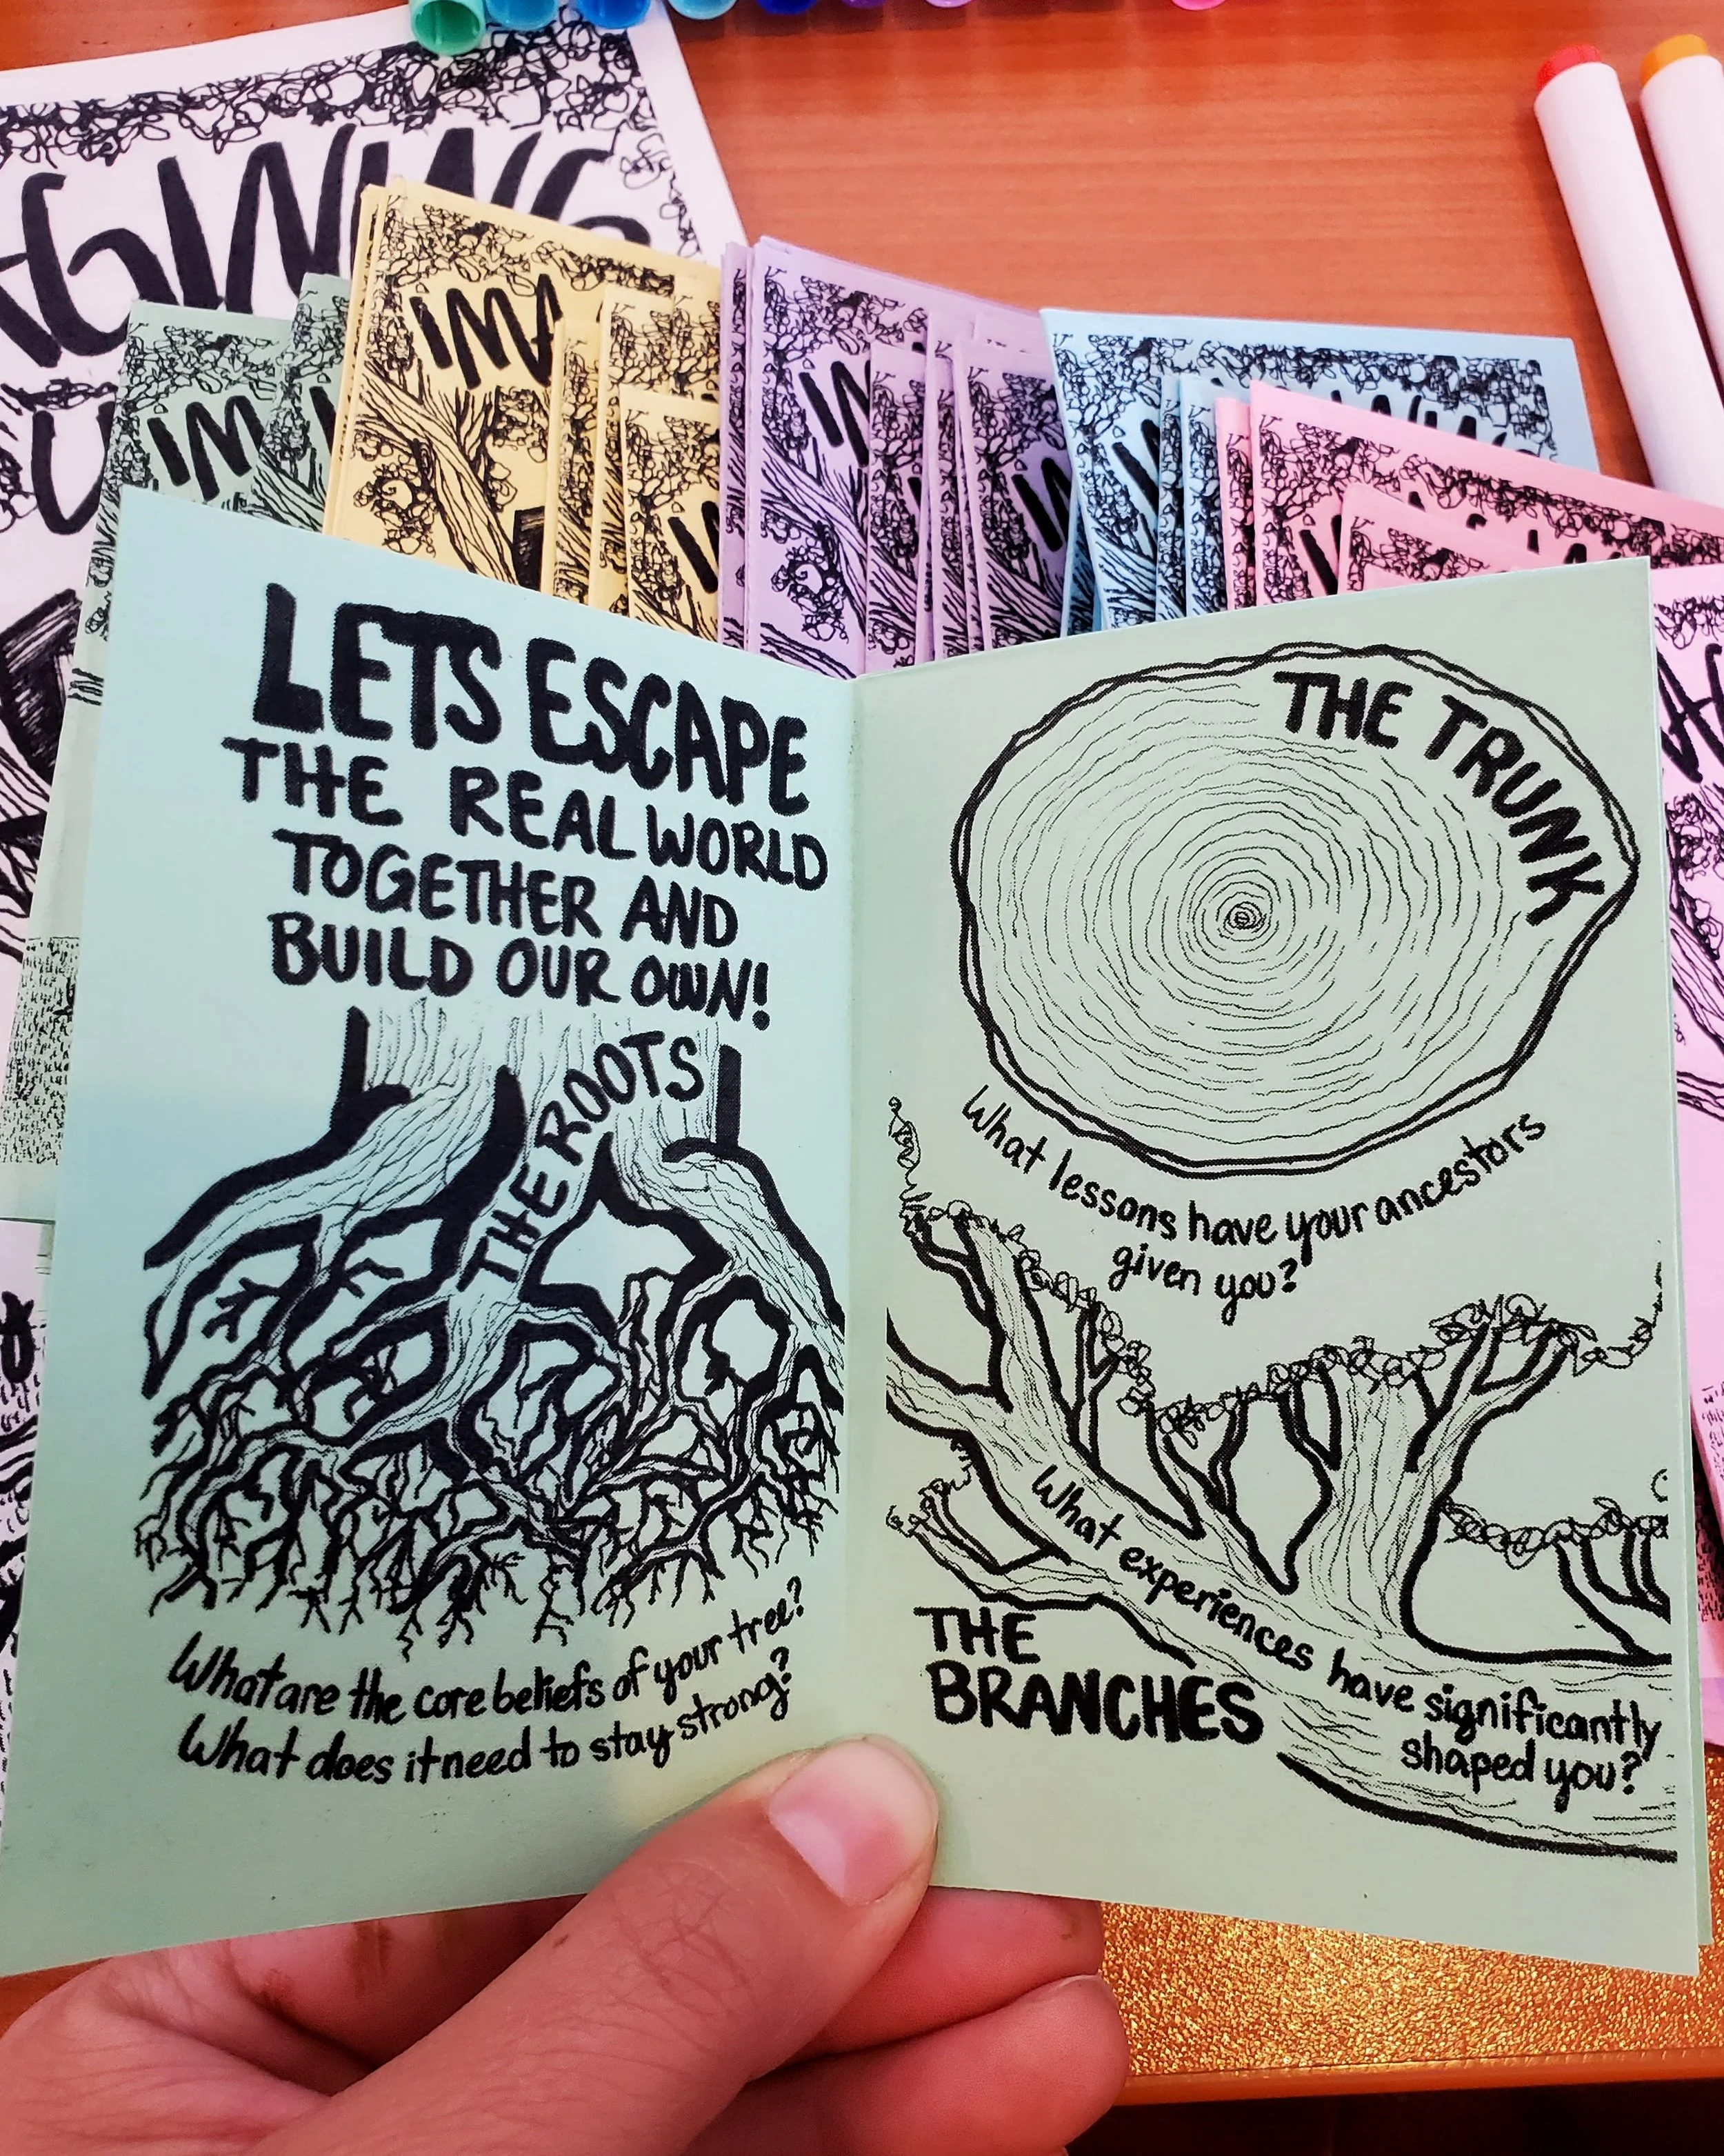 LETS ESCAPE
THE REAL WORLD
TOGETHER AND
BUILD OUR OWN!
THE ROOTS
What are the core beliefs of your tree?
What does it need to stay strong?
THE TRUNK
What lessons have your ancestors
given you?
What experiences have significantly
shaped you?
THE
BRANCHES